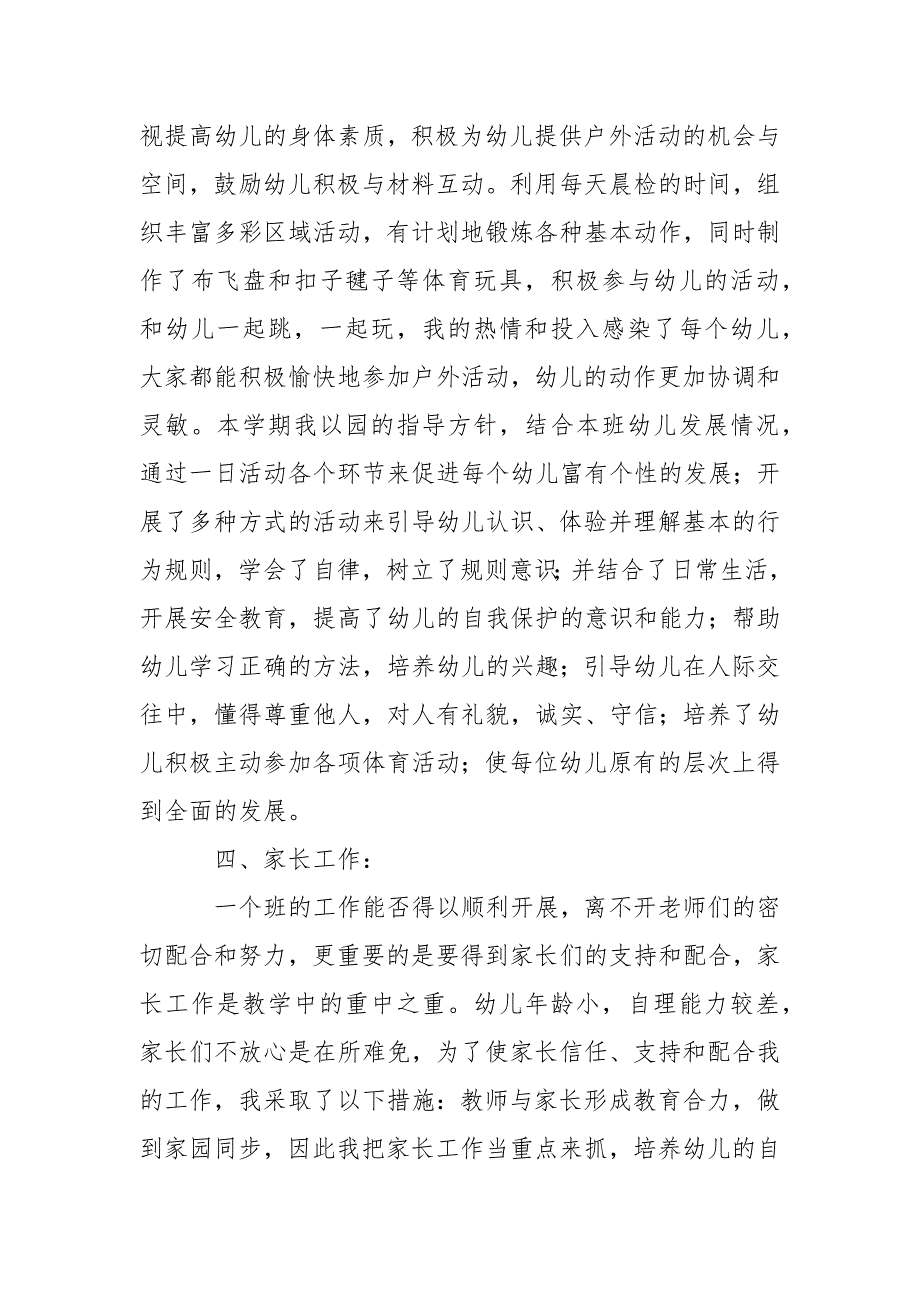 视提高幼儿的身体素质，积极为幼儿提供户外活动的机会与
空间，鼓励幼儿积极与材料互动。利用每天晨检的时间，组
织丰富多彩区域活动，有计划地锻炼各种基本动作，同时制
作了布飞盘和扣子毽子等体育玩具，积极参与幼儿的活动，
和幼儿一起跳，一起玩，我的热情和投入感染了每个幼儿，
大家都能积极愉快地参加户外活动，幼儿的动作更加协调和
灵敏。本学期我以园的指导方针，结合本班幼儿发展情况，
通过一日活动各个环节来促进每个幼儿富有个性的发展；开
展了多种方式的活动来引导幼儿认识、体验并理解基本的行
为规则，学会了自律，树立了规则意识；并结合了日常生活，
开展安全教育，提高了幼儿的自我保护的意识和能力；帮助
幼儿学习正确的方法，培养幼儿的兴趣；引导幼儿在人际交
往中，懂得尊重他人，对人有礼貌，诚实、守信；培养了幼
儿积极主动参加各项体育活动；使每位幼儿原有的层次上得
到全面的发展。
四、家长工作：
一个班的工作能否得以顺利开展，离不开老师们的密
切配合和努力，更重要的是要得到家长们的支持和配合，家
长工作是教学中的重中之重。幼儿年龄小，自理能力较差，
家长们不放心是在所难免，为了使家长信任、支持和配合我
的工作，我采取了以下措施：教师与家长形成教育合力，做
到家园同步，因此我把家长工作当重点来抓，培养幼儿的自